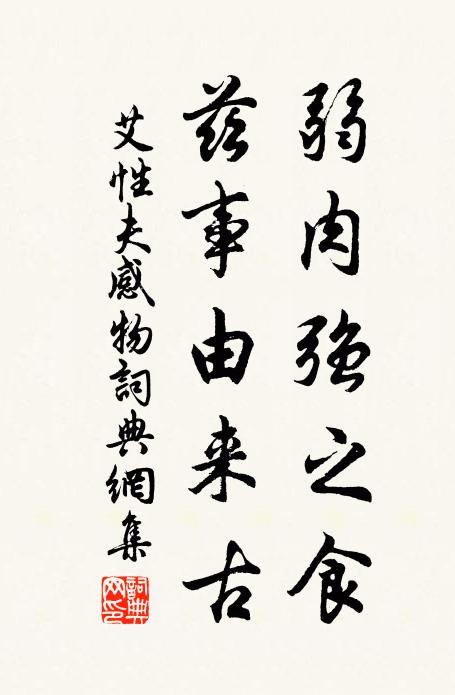 弱肉强之食
兹事由来古
艾性夫感物詞典網集
詞典網印